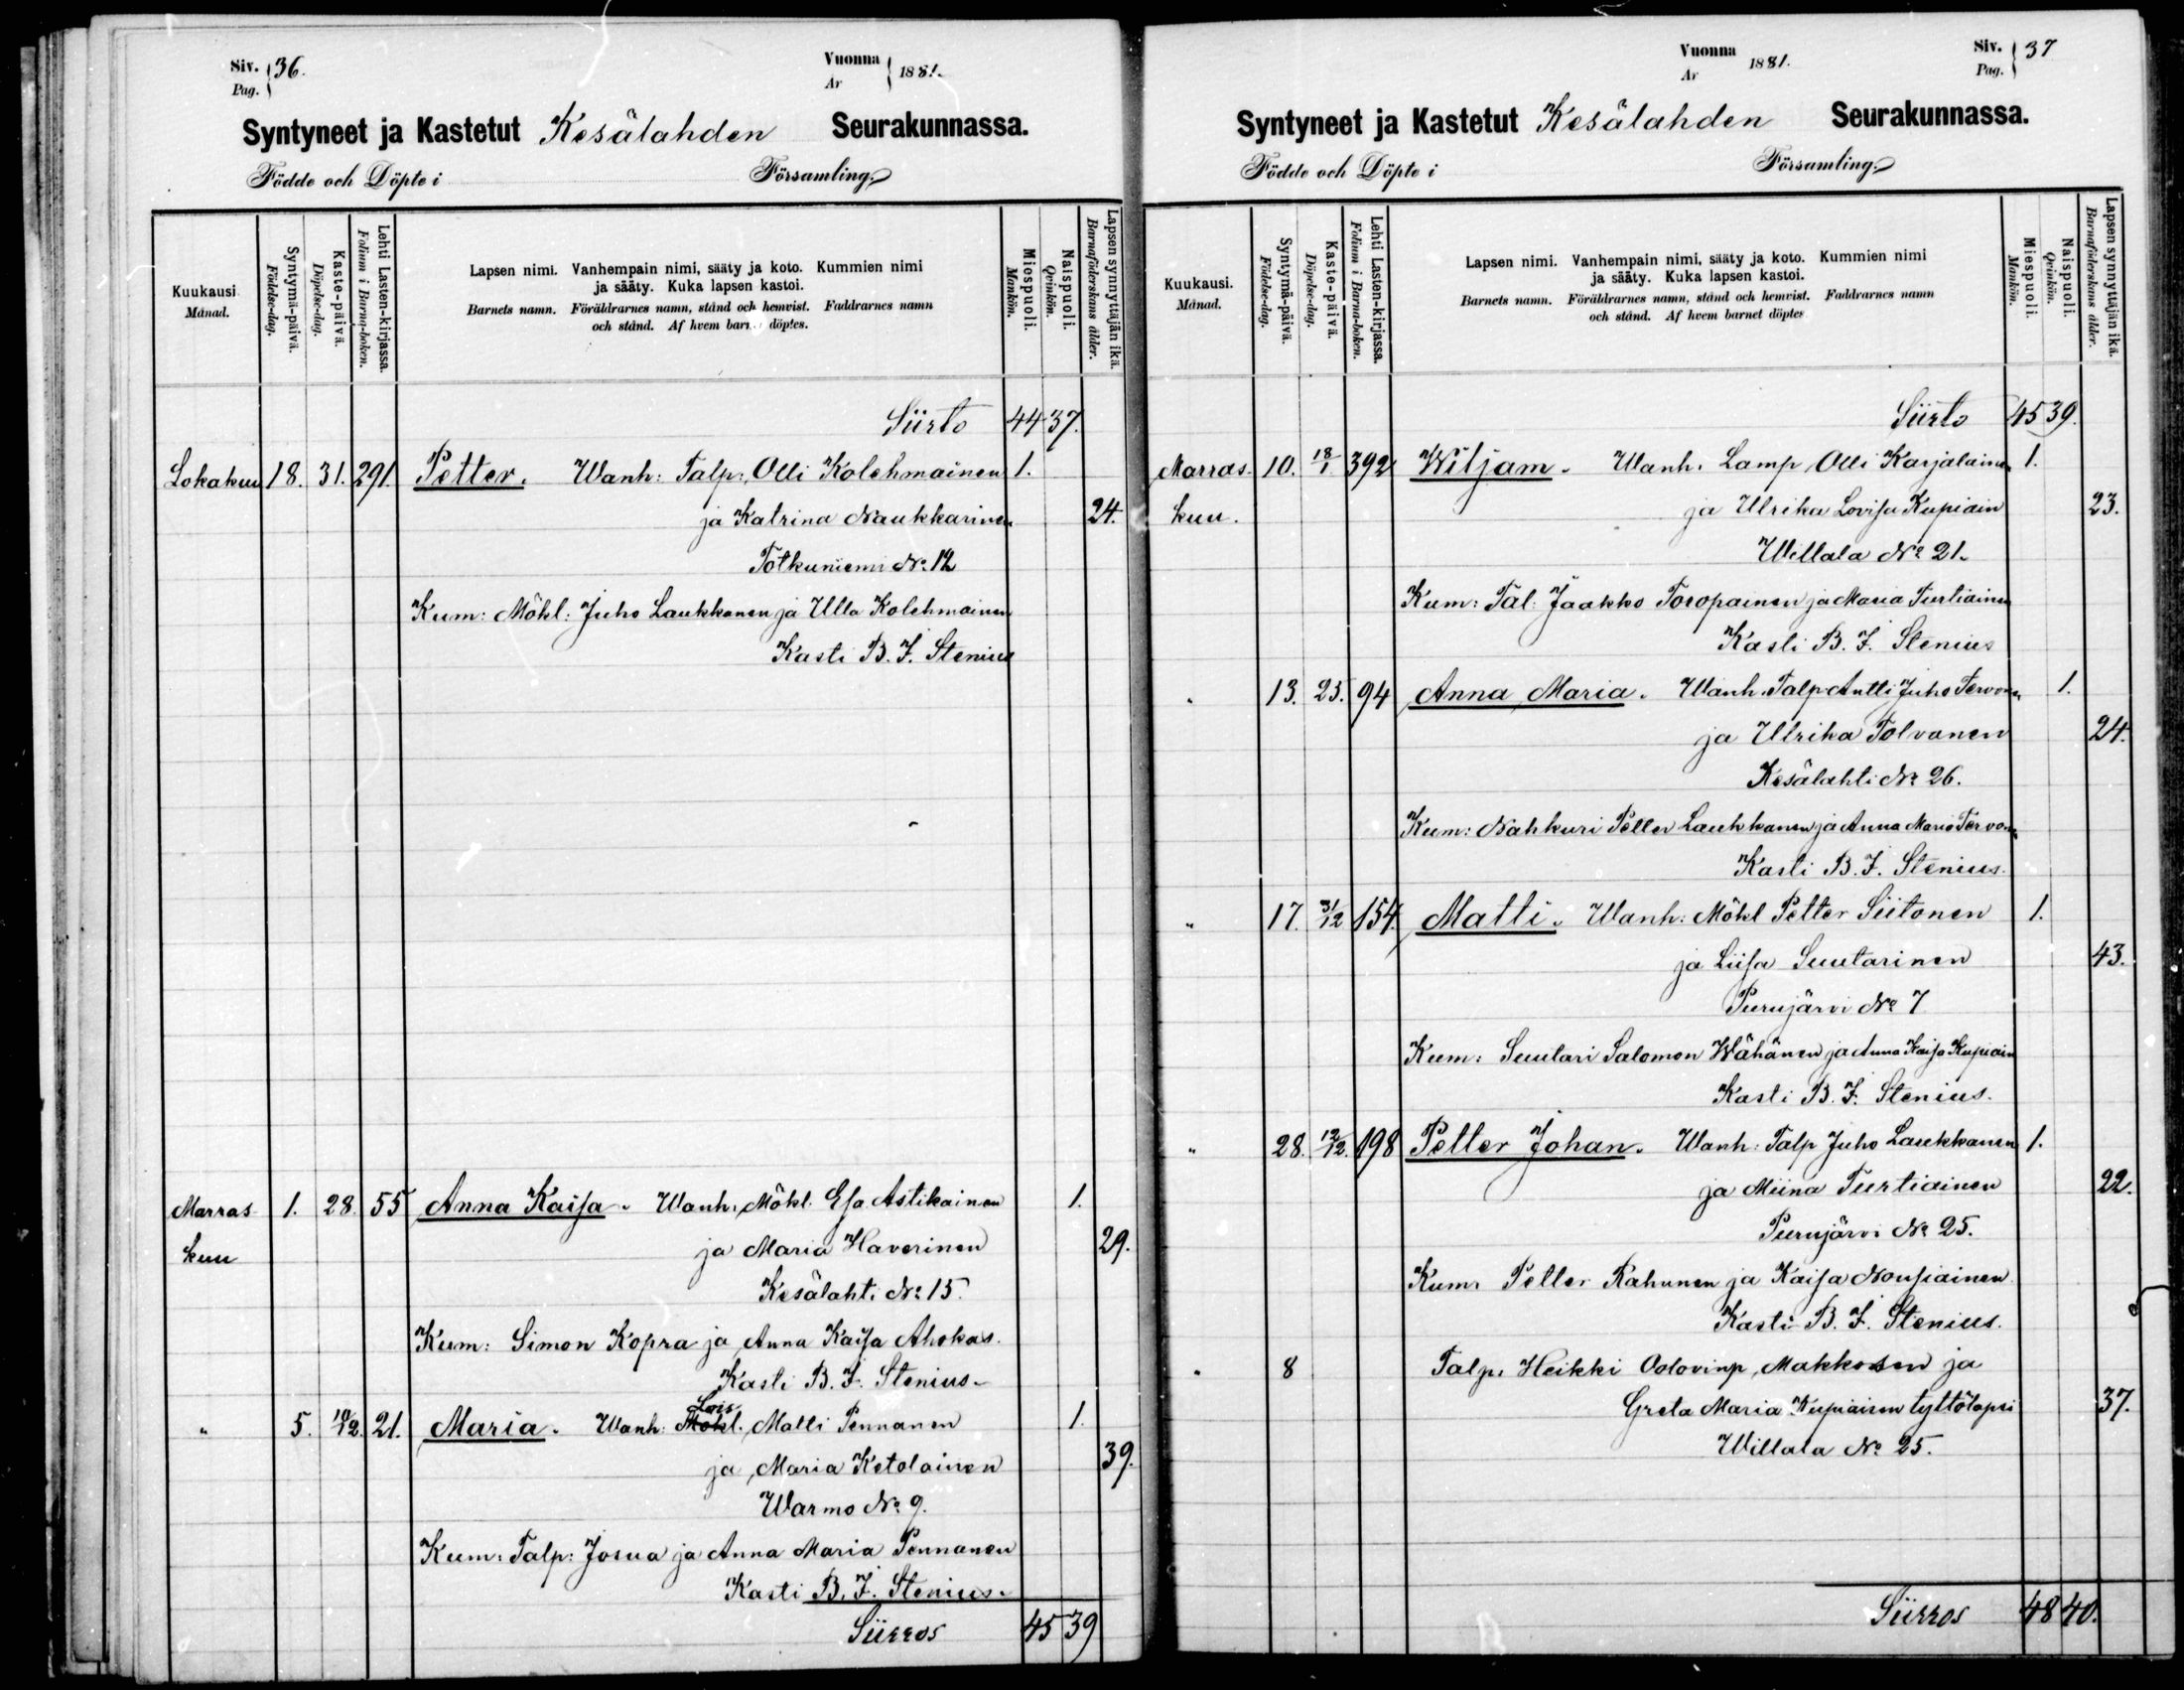 Siv. 36. Vuonna 1881.
Pag. År
Syntyneet ja Kastetut Kesälahden Seurakunnassa.
Födde och Döpte i Församling.
Kuukausi
Månad.
Syntymä-päivä.
Födelse-dag.
Kaste-päivä.
Döpelse-dag.
Lehti Lasten-kirjassa.
Folium i Barna-boken.
Lapsen nimi. Vanhempain nimi, sääty ja koto. Kummien nimi
ja sääty. Kuka lapsen kastoi.
Barnets namn. Föräldrarnes namn, stånd och hemvist. Faddrarnes namn
och stånd. Af hvem döptes.
Miespuoli.
Mankön.
Naispuoli.
Qvinkön.
Lapsen synnyttäjän ikä.
Barnaföderskans ålder.
Siirto 44 37.
Lokakuu 18. 31. 291. Petter. Wanh: Talp: Olli Kolehmainen 1.
ja Katrina Naukkarinen 24.
Totkuniemi No. 12
Kum: Mökl: Juho Laukkanen ja Ulla Kolehmainen
Kasti B. J. Stenius
Marras 1. 28. 55 Anna Kaisa. Wanh: Mökl. Esa Astikainen 1.
kuu ja Maria Haverinen 29.
Kesälahti No 15.
Kum: Simon Kopra ja Anna Kaisa Ahokas.
Kasti B. J. Stenius.
Lois
" 5. 21. Maria. Wanh: Mökl. Matti Pennanen 1.
ja Maria Ketolainen 39.
Warmo No 9.
Kum: Talp: Josua ja Anna Maria Pennanen
Kasti B. J. Stenius.
Siirros 45 39
Vuonna 1881. Siv. 37
År Pag.
Syntyneet ja Kastetut Kesälahden Seurakunnassa.
Födde och Döpte i Församling.
Kuukausi.
Månad.
Syntymä-päivä.
Födelse-dag.
Kaste-päivä.
Döpelse-dag.
Lehti Lasten-kirjassa.
Folium i Barna-boken.
Lapsen nimi. Vanhempain nimi, sääty ja koto. Kummien nimi
ja sääty. Kuka lapsen kastoi.
Barnets namn. Föräldrarnes namn, stånd och hemvist. Faddrarnes namn
och stånd. Af hvem barnet döptes
Miespuoli.
Mankön.
Naispuoli.
Qvinkön.
Lapsen synnyttäjän ikä.
Barnaföderskans ålder.
Siirto 45 39.
Marras 10. 18/1 392 Wiljam. Wanh. Lamp Olli Karjalainen 1.
kuu. ja Ulrika Lovisa Kupiain 23.
Willala No 21.
Kum: Tal: Jaakko Toropainen ja Maria Tiertiainen
Kasti B. J. Stenius
" 13. 25. 94 Anna Maria. Wanh. Talp Antti Juho Tervonen 1.
ja Ulrika Tolvanen 24.
Kesälahti No 26.
Kum: Nahkuri Petter Laukkanen ja Anna Maria Tervonen
Kasti B. J. Stenius.
" 17. 31/12 154. Matti. Wanh: Mökl Petter Siitonen 1.
ja Liisa Suutarinen 43.
Purujärvi No 7
Kum: Suutari Salomon Wähänen ja Anna Kaisa Kupiain
Kasti B. J. Stenius.
" 28. 12/12. 198 Petter Johan. Wanh: Talp Juho Laukkanen 1.
ja Miina Tiertiainen 22.
Purujärvi No 25.
Kum: Petter Rahunen ja Kaisa Nousiainen
Kasti B. J. Stenius.
" 8 Talp. Heikki Makkosen ja
Greta Maria Kupiaisen tyttölapsi 37.
Willala No 25.
Siirros 48 40.